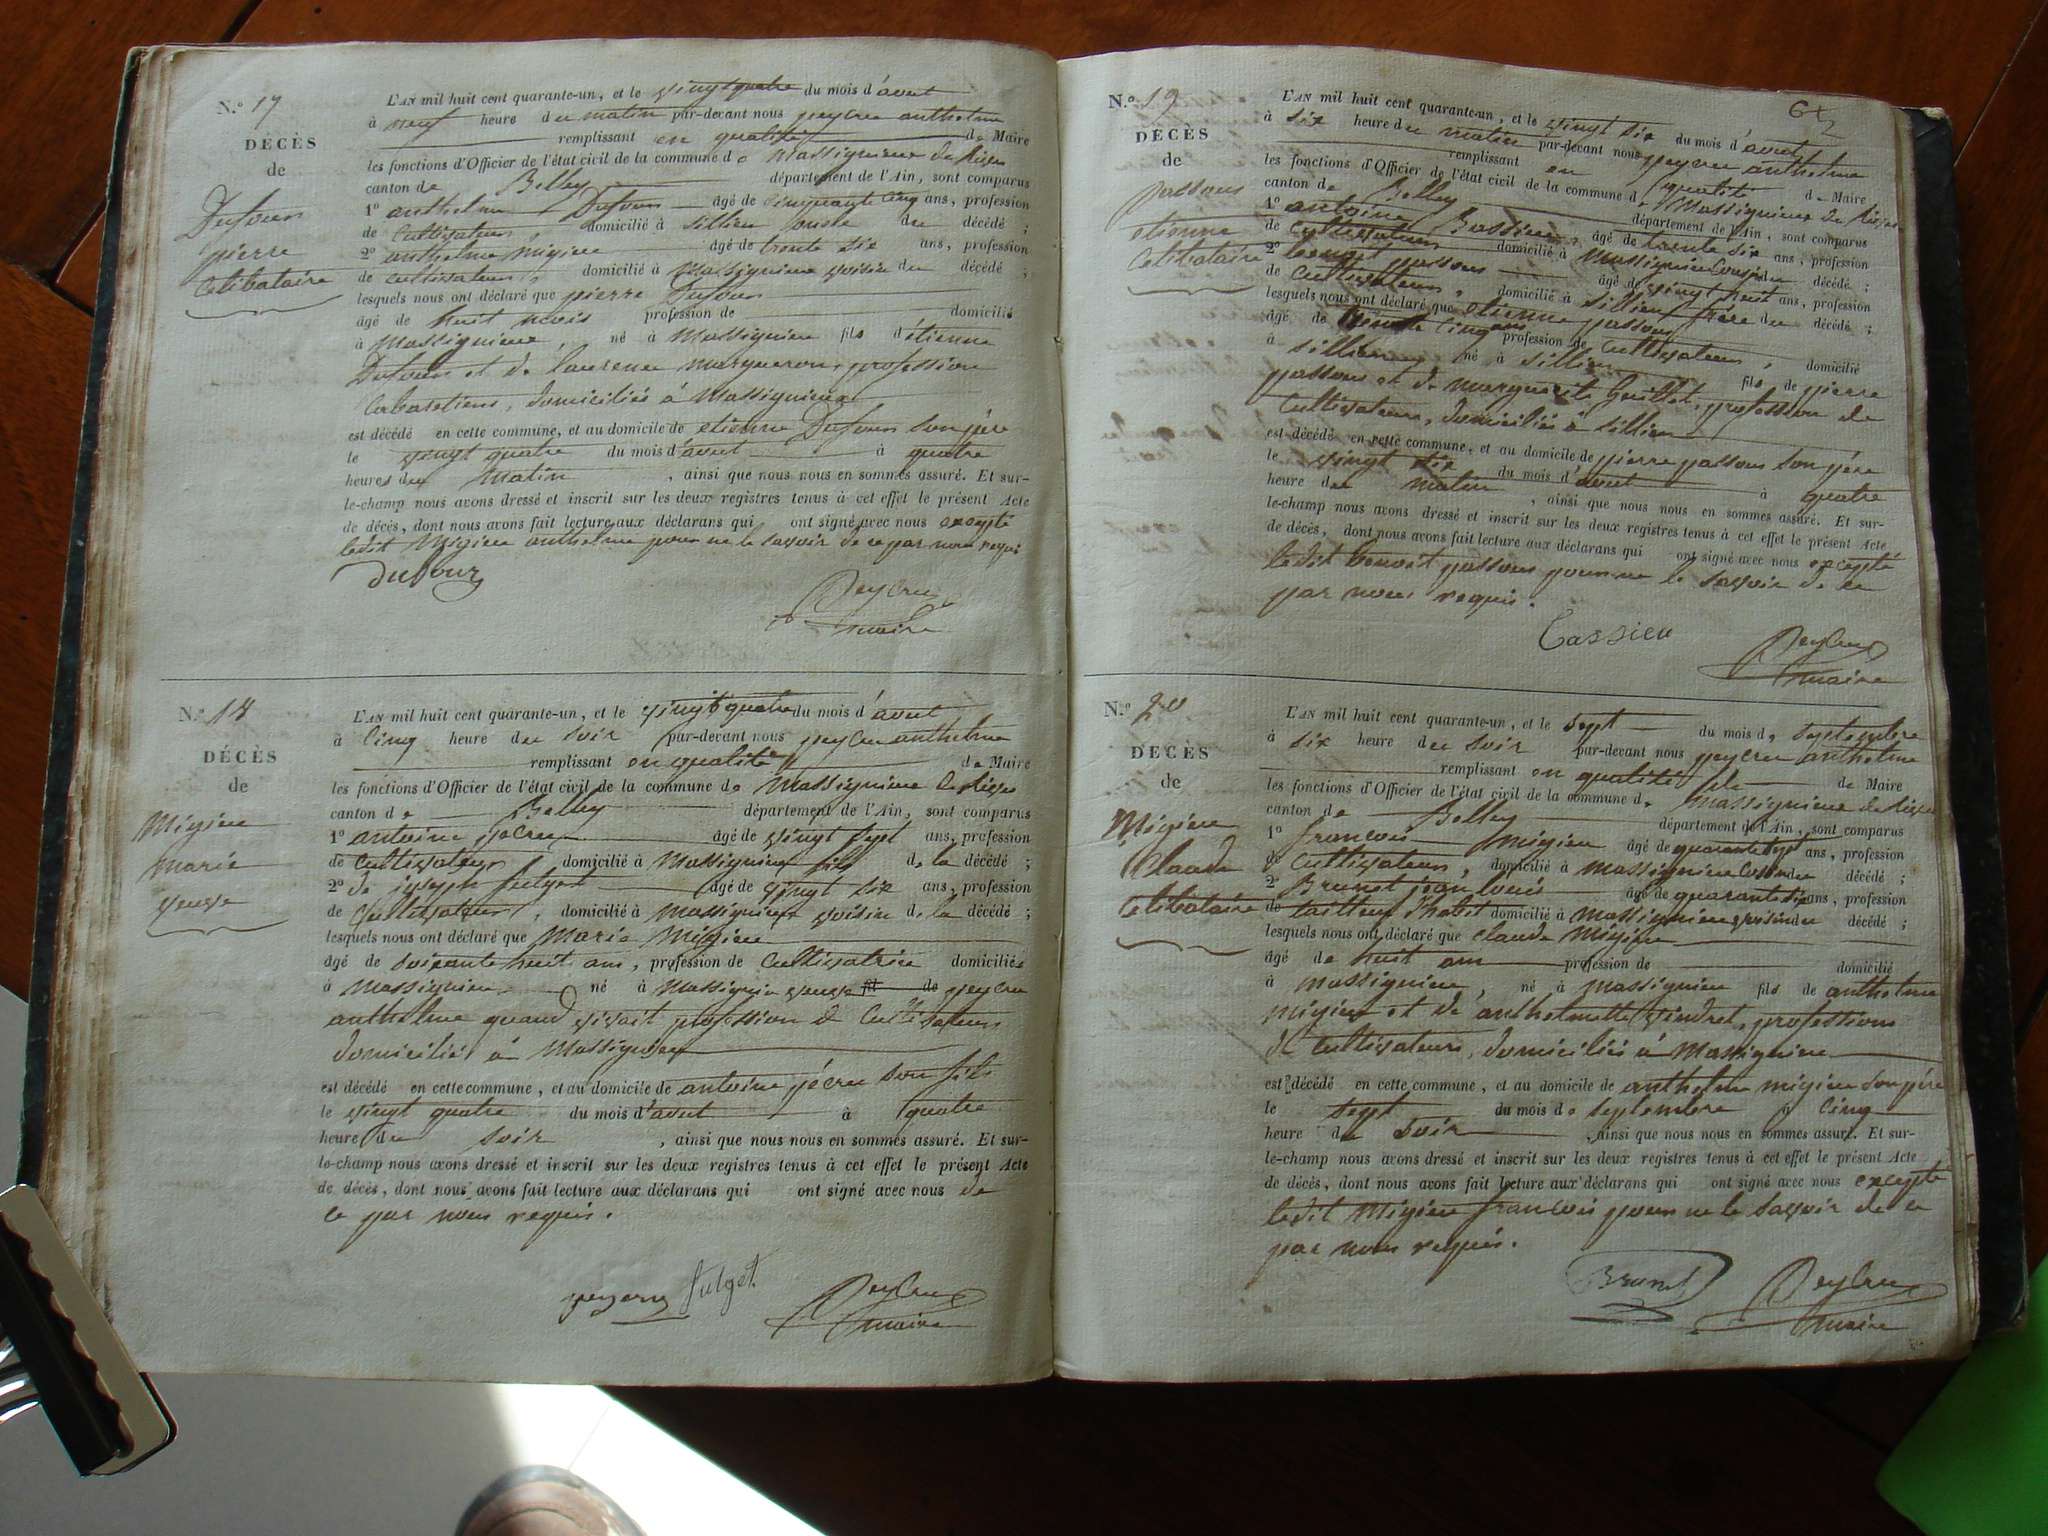 N.º 17
DÉCÈS
de
Dufour
pierre
Celibataire
L'AN mil huit cent quarante-un, et le vingt quatre du mois d'avut
à neuf heure du matin par-devant nous peycru anthelme
remplissant en qualité de Maire
les fonctions d'Officier de l'état civil de la commune de Massignieu de Rives
canton de Belley département de l'Ain, sont comparus
1º anthelme Dufour âgé de cinquante cinq ans, profession
de Cultivateur domicilié à Sillien oncle du décédé ;
2º anthelme Migieu âgé de trente six ans, profession
de cultivateur, domicilié à Massignieu voisin du décédé ;
lesquels nous ont déclaré que pierre Dufour
âgé de huit mois profession de domicilié
à Massignieu, né à Massignieu fils d'étienne
Dufour et de laurence margueron, profession
Cabaretiers, domiciliés à Massignieu
est décédé en cette commune, et au domicile de etienne Dufour son père
le vingt quatre du mois d'avut à quatre
heures du Matin, ainsi que nous nous en sommes assuré. Et sur-
le-champ nous avons dressé et inscrit sur les deux registres tenus à cet effet le présent Acte
de décès, dont nous avons fait lecture aux déclarans qui ont signé avec nous excepté
ledit Migieu anthelme pour ne le savoir de ce par nous requi
Dufour
Peycru
maire
N.º 18
DÉCÈS
de
Migieu
marie
veuve
L'AN mil huit cent quarante-un, et le vingt quatre du mois d'avut
à Cinq heure du soir par-devant nous peycru anthelme
remplissant en qualité de Maire
les fonctions d'Officier de l'état civil de la commune de Massignieu de Rives
canton de Belley département de l'Ain, sont comparus
1º antoine pecru âgé de vingt sept ans, profession
de cultivateur domicilié à Massignieu fils de la décédé ;
2º de joseph fulget âgé de vingt six ans, profession
de Cultivateur, domicilié à Massignieu voisin de la décédé ;
lesquels nous ont déclaré que Marie Migieu
âgé de soixante huit ans, profession de Cultivatrice domiciliée
à Massignieu né à Massignieu veuve de peycru
anthelme quand vivait profession de Cultivateur
domicilié à Massignieu
est décédé en cette commune, et au domicile de antoine pécru son fils
le vingt quatre du mois d'avut à quatre
heure du soir, ainsi que nous nous en sommes assuré. Et sur-
le-champ nous avons dressé et inscrit sur les deux registres tenus à cet effet le présent Acte
de décès, dont nous avons fait lecture aux déclarans qui ont signé avec nous de
ce par nous requis.
fulget
Peycru
maire
N.º 19
DÉCÈS
de
passous
etienne
Celibataire
L'AN mil huit cent quarante-un, et le vingt six du mois d'avut
à six heure du matin par-devant nous peycru anthelme
remplissant en qualité de Maire
les fonctions d'Officier de l'état civil de la commune de Massignieu de Rives
canton de Belley département de l'Ain, sont comparus
1º antoine Cassieu âgé de trente six ans, profession
de cultivateur domicilié à Massignieu Cousin du décédé ;
2º benoit passous âgé de vingt huit ans, profession
de Cultivateur, domicilié à Sillien frère du décédé ;
lesquels nous ont déclaré que etienne passous
âgé de trente cinq ans profession de Cultivateur, domicilié
à sillien né à sillien fils de pierre
passous et de marguerite Guillot, profession de
Cultivateurs, domiciliés à sillien
est décédé en cette commune, et au domicile de pierre passous son père
le vingt six du mois d'avut à quatre
heure du matin, ainsi que nous nous en sommes assuré. Et sur-
le-champ nous avons dressé et inscrit sur les deux registres tenus à cet effet le présent Acte
de décès, dont nous avons fait lecture aux déclarans qui ont signé avec nous excepté
ledit benoit passous pour ne le savoir de ce
par nous requis.
Cassieu
Peycru
maire
N.º 20
DÉCÈS
de
Migieu
Claude
Celibataire
L'AN mil huit cent quarante-un, et le sept du mois de septembre
à six heure du soir par-devant nous peycru anthelme
remplissant en qualité de Maire
les fonctions d'Officier de l'état civil de la commune de Massignieu de Rives
canton de Belley département de l'Ain, sont comparus
1º francois migieu âgé de quarante sept ans, profession
de Cultivateur, domicilié à Massignieu Cousin du décédé ;
2º Brunet jean louis âgé de quarante six ans, profession
de tailleur d'habit domicilié à Massignieu voisin du décédé ;
lesquels nous ont déclaré que claude Migieu
âgé de huit ans profession de domicilié
à massignieu, né à massignieu fils de anthelme
migieu et de anthelmette vindret, professions
de Cultivateurs, domiciliés à Massignieu
est décédé en cette commune, et au domicile de anthelme migieu son père
le sept du mois de septembre à Cinq
heure du soir ainsi que nous nous en sommes assuré. Et sur-
le-champ nous avons dressé et inscrit sur les deux registres tenus à cet effet le présent Acte
de décès, dont nous avons fait lecture aux déclarans qui ont signé avec nous excepté
ledit Migieu francois pour ne le savoir de ce
par nous requis.
Brunet
Peycru
maire